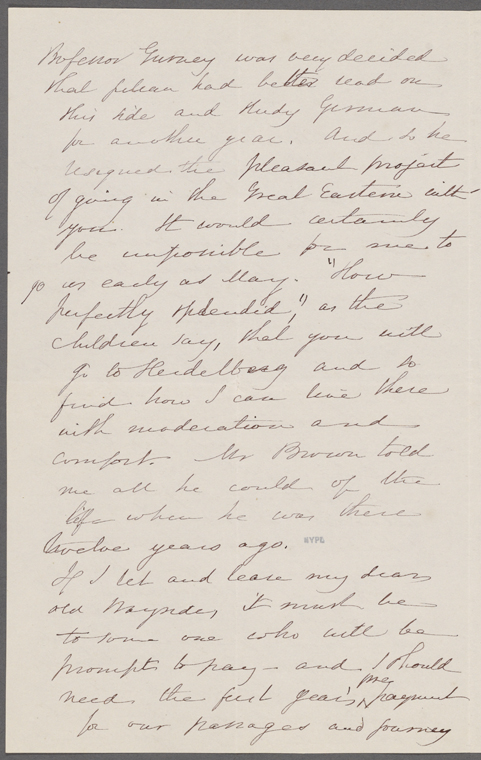 Professor Gurney was very decided
that Julian had better read on
this side and study German
for another year. And so he
resigned the pleasant project
of going in the Great Eastern with
you. It would certainly
be impossible for me to
go as early as May. "How
perfectly splendid," as the
children say, that you will
go to Heidelberg and so
find how I can live there
with moderation and
comfort. Mr Brown told
me all he could of the
life when he was there
twelve years ago.
NYPL
If I let and lease my dear
old Wayside, it must be
to some one who will be
prompt to pay - and I should
need the first year's prepayment
for our passages and journey